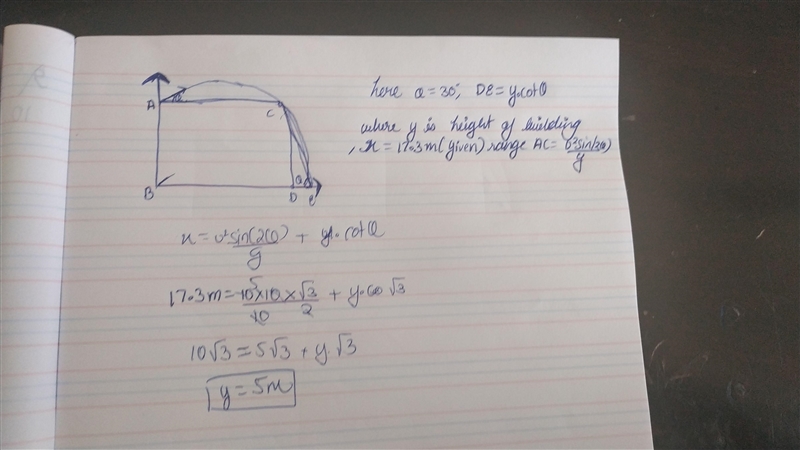 A
C
B
D
here Q = 30°, DE = y.cotQ
where y is height of building
, x = 17.3m (given) range AC = U²sin(2Q)/g
x = U²sin(2Q)/g + y. cotQ
17.3m = 10 x 10 x √3 / 10 2 + y. √3
10√3 = 5√3 + y.√3
y = 5m